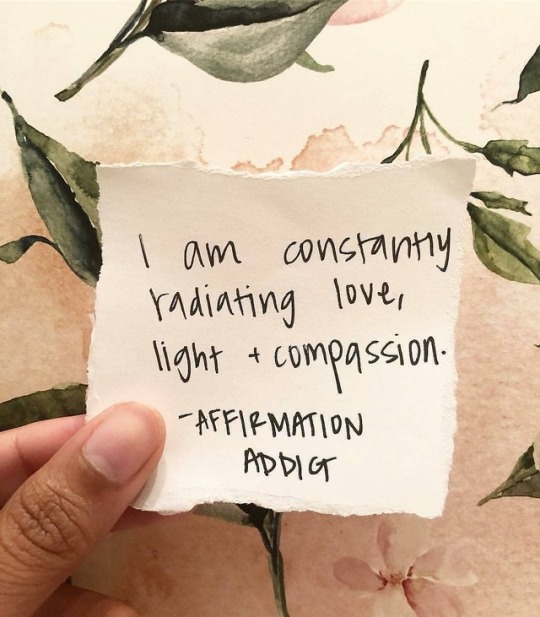 I am constantly
radiating love,
light + compassion.
-AFFIRMATION
ADDICT